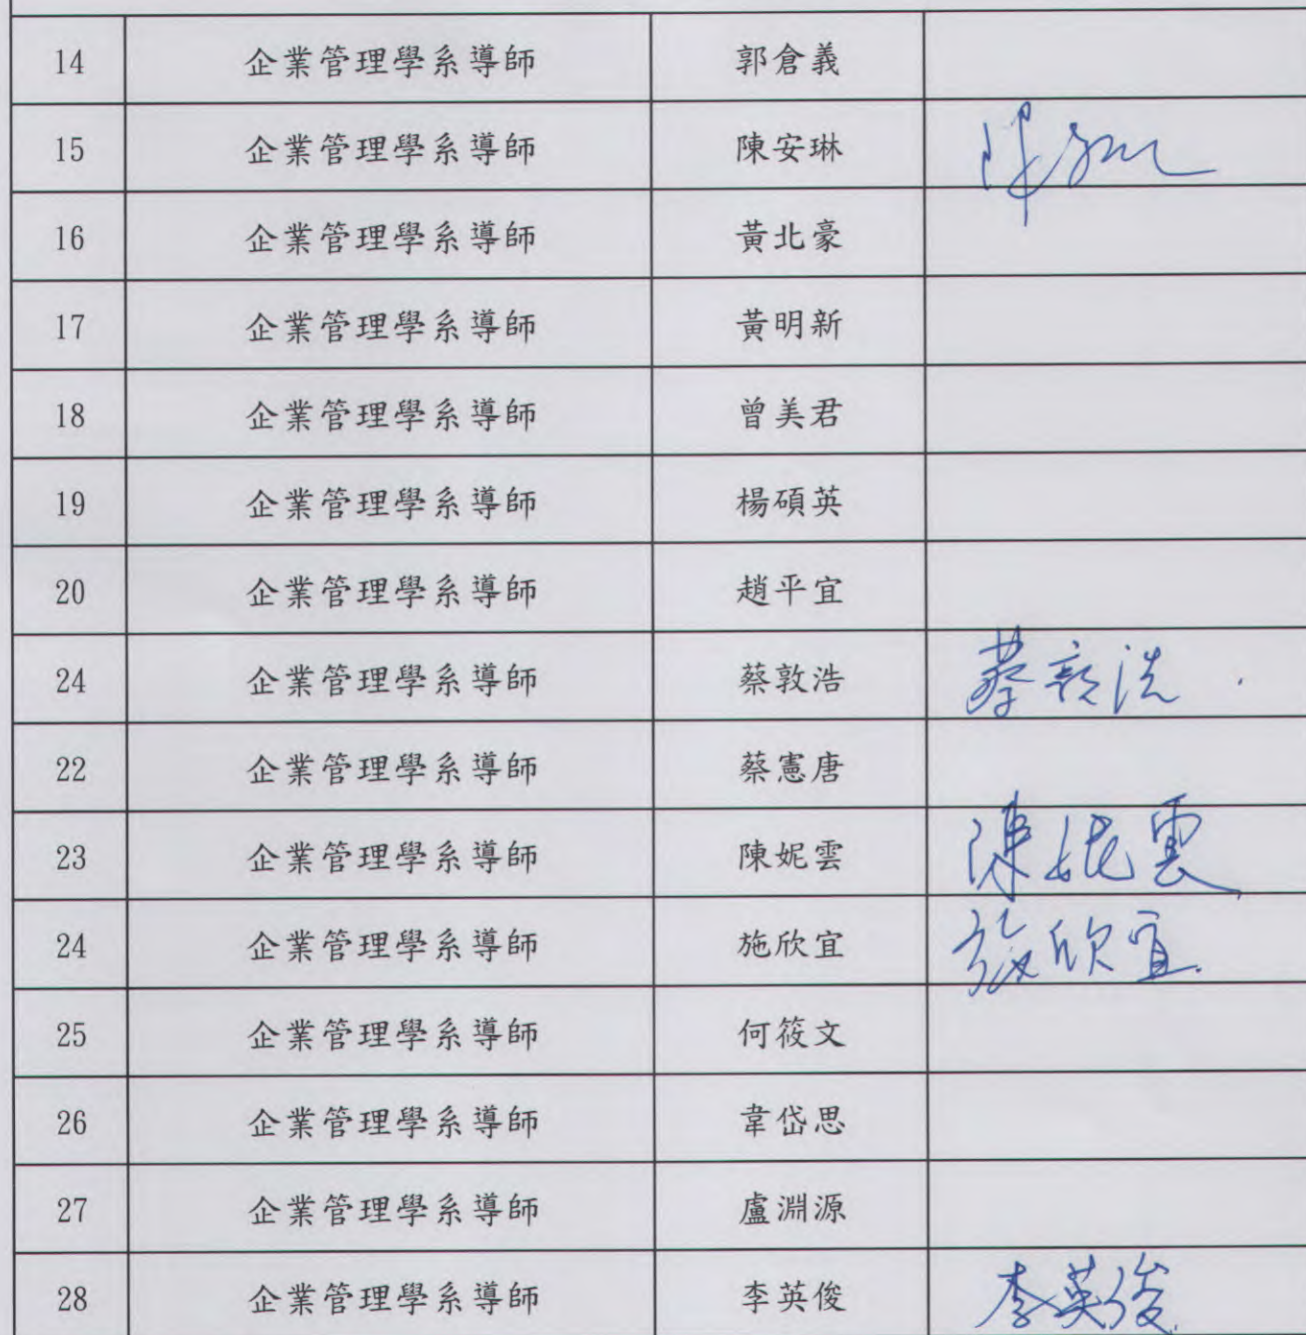 14 企業管理學系導師 郭倉義
15 企業管理學系導師 陳安琳
16 企業管理學系導師 黃北豪
17 企業管理學系導師 黃明新
18 企業管理學系導師 曾美君
19 企業管理學系導師 楊碩英
20 企業管理學系導師 趙平宜
24 企業管理學系導師 蔡敦浩 蔡敦浩
22 企業管理學系導師 蔡憲唐
23 企業管理學系導師 陳妮雲 陳妮雲
24 企業管理學系導師 施欣宜 施欣宜
25 企業管理學系導師 何筱文
26 企業管理學系導師 韋岱思
27 企業管理學系導師 盧淵源
28 企業管理學系導師 李英俊 李英俊